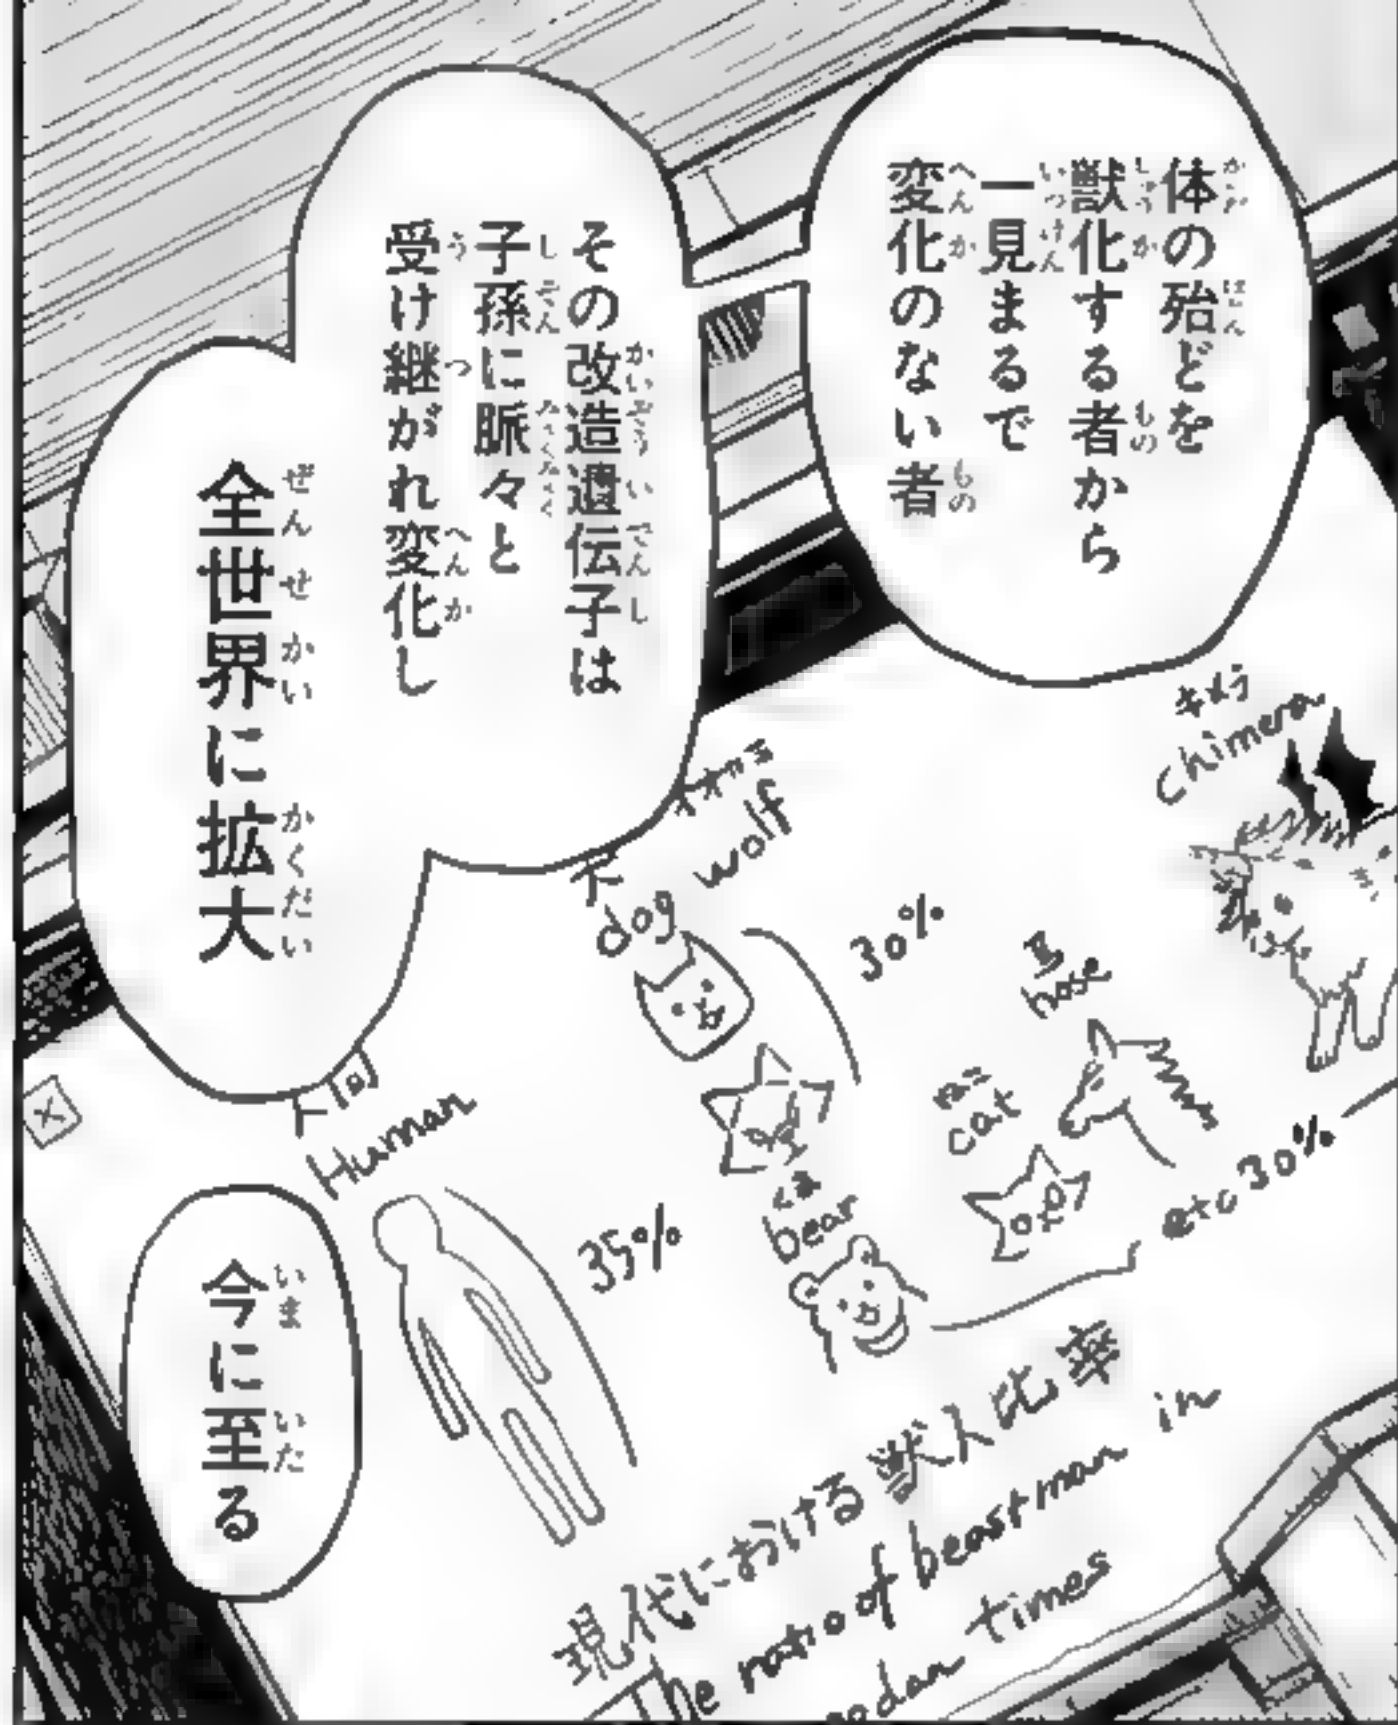 体の殆どを
獣化する者から
一見まるで
変化のない者
その改造遺伝子は
子孫に脈々と
受け継がれ変化し
全世界に拡大
今に至る
キメラ
chimera
オオカミ
wolf
犬
dog
30%
馬
hose
ねこ
cat
etc 30%
人間
Human
35%
くま
bear
現代における獣人比率
The ratio of beastman in
times